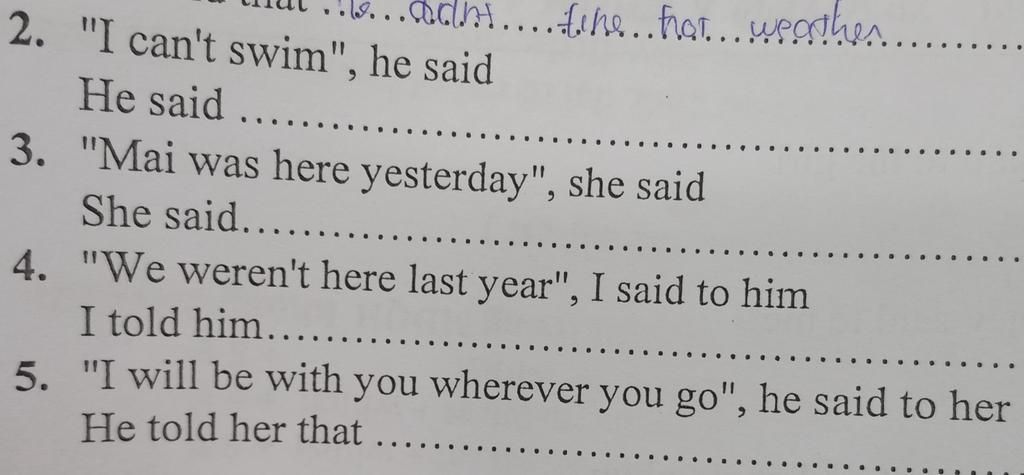 weather
2. "I can't swim", he said
He said ........................................
3. "Mai was here yesterday", she said
She said........................................
4. "We weren't here last year", I said to him
I told him........................................
5. "I will be with you wherever you go", he said to her
He told her that ........................................